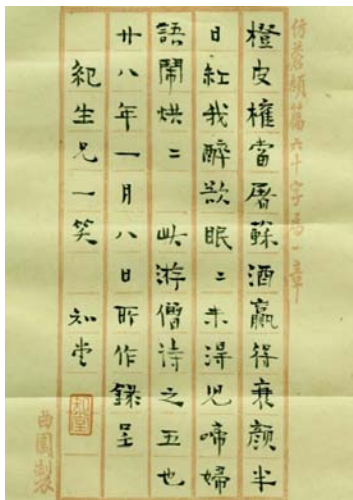 仿蒼頡篇六十字為一章
橙皮權當屠蘇酒贏得衰顏半
日紅我醉欲眠〻未得兒啼婦
語鬧烘〻 此游僧詩之五也
廿八年一月八日所作錄呈
紀生兄一笑 知堂
知堂
曲園製